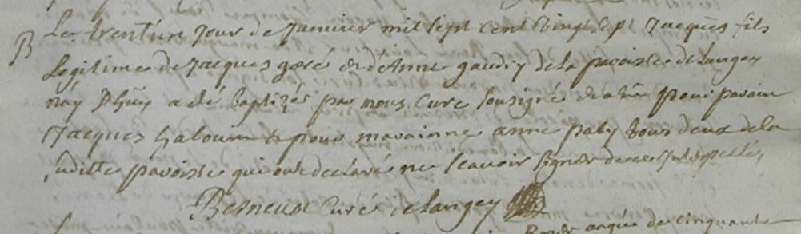 B
Le trentün jour de Janvier mil sept cent vingt sept Jacques fils
legitime de Jacques gosé et d'Anne gaudry de la paroisse de Langey
náy d'huy a été baptizé par nous Curé sousigné et a eü pour parain
Jacques haloüin et pour maraine anne paby tous deux de la
ditte paroisse qui ont declarés ne scavoir signer de ce
Curé de Langey
agée de cinquante